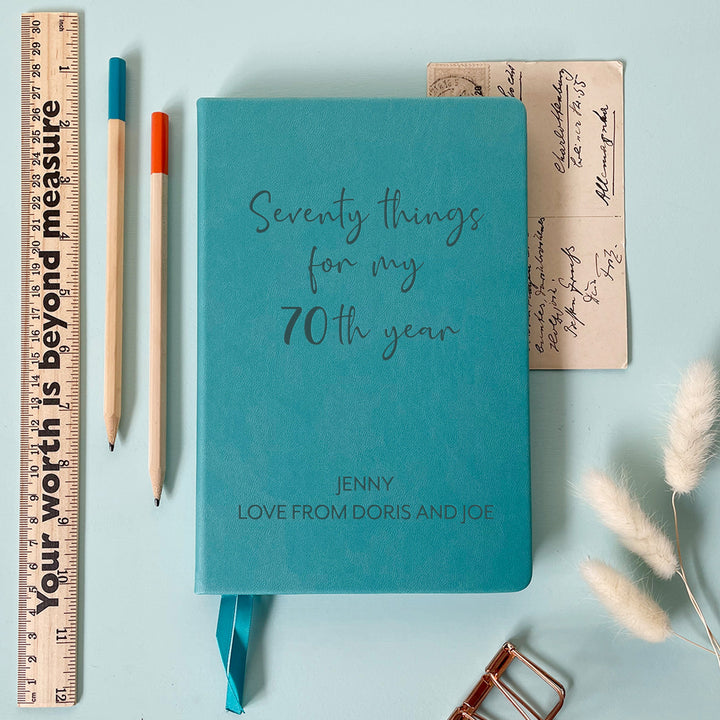 Your worth is beyond measure
Seventy things
for my
70th year
JENNY
LOVE FROM DORIS AND JOE
Charlottenburg
Allemagne